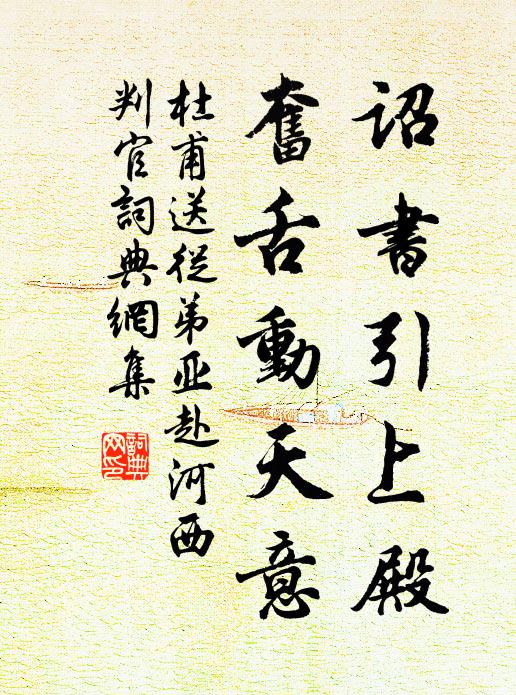 詔書引上殿
奮舌動天意
杜甫送從弟亚赴河西
判官詞典網集
詞典
网印